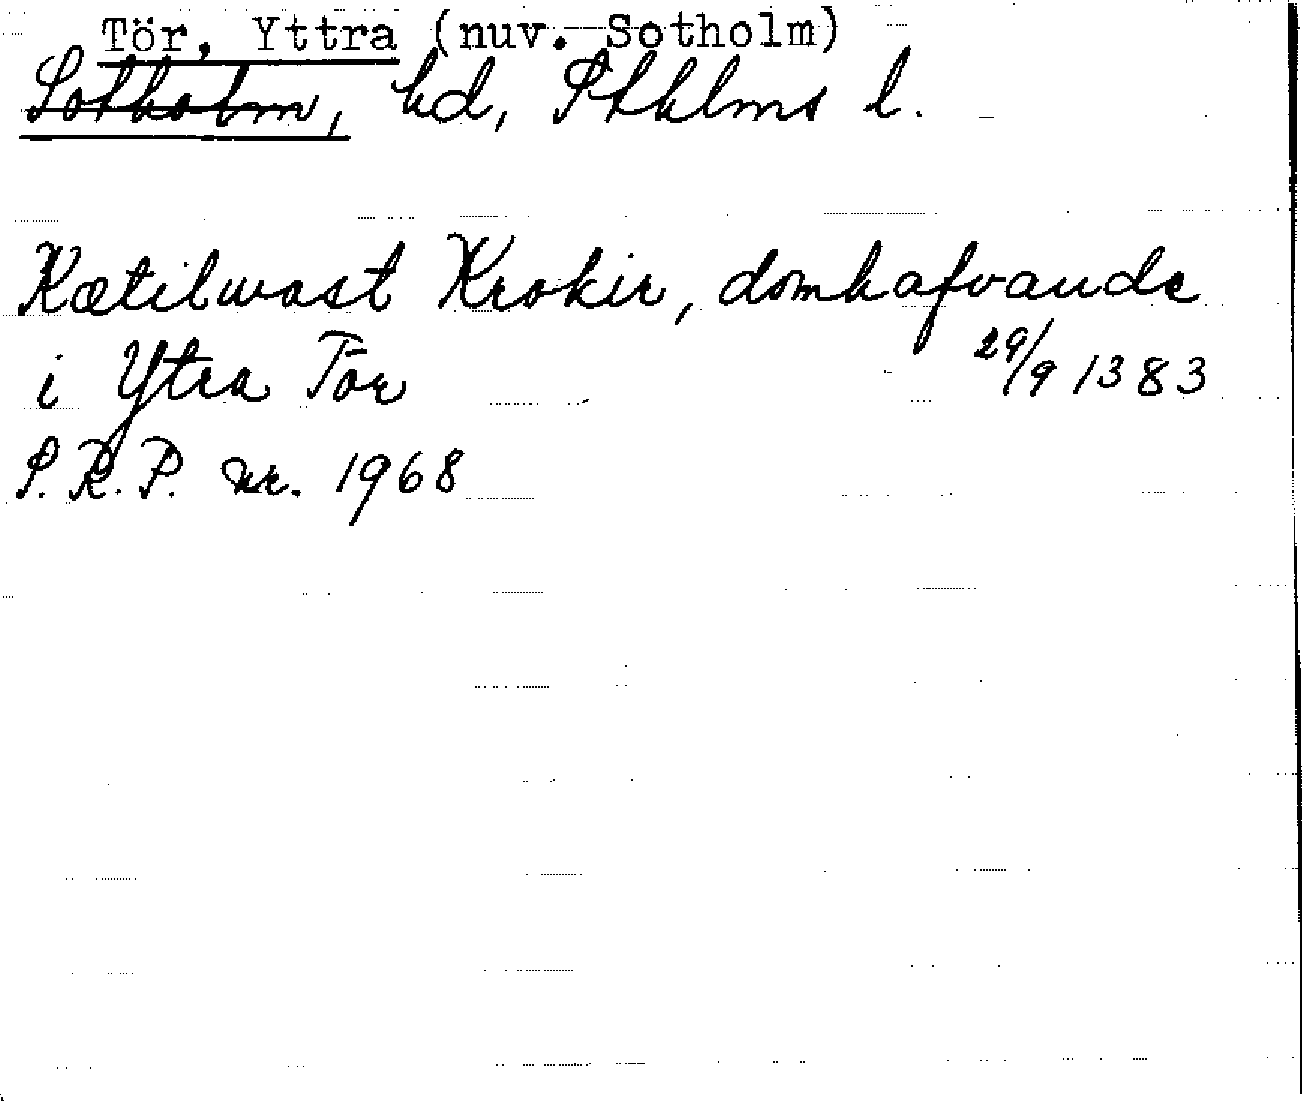 Tör, Yttra (nuv. Sotholm)
Sotholm, hd, Sthlms l.
Kætilwast Krokir, domhafvande
i Ytra Tör 29/9 1383
S.R.P. nr. 1968